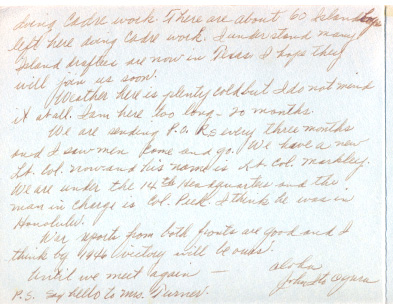 doing cadre work. There are about 60 Island boys
left here doing cadre work. I understand many
Island draftees are now in Texas. I hope they
will join us soon.
Weather here is plenty cold but I do not mind
it at all. I am here too long – 20 months.
We are sending P.O. Rs every three months
and I saw men come and go. We have a new
Lt. Col. now and his name is Lt. Col. Markley.
We are under the 14th Headquarters and the
man in charge is Col. Peek. I think he was in
Honolulu.
War reports from both fronts are good and I
think by 1946 victory will be ours.
Until we meet again —
aloha
John
P.S. Say hello to Mrs. Turner.